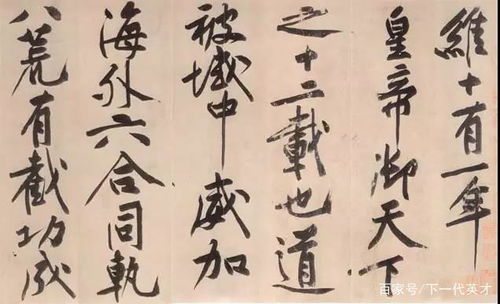 維十有一年
皇帝御天下
之十二載也道
被域中威加
海外六合同軌
八荒有截功成
百家号/下一代英才